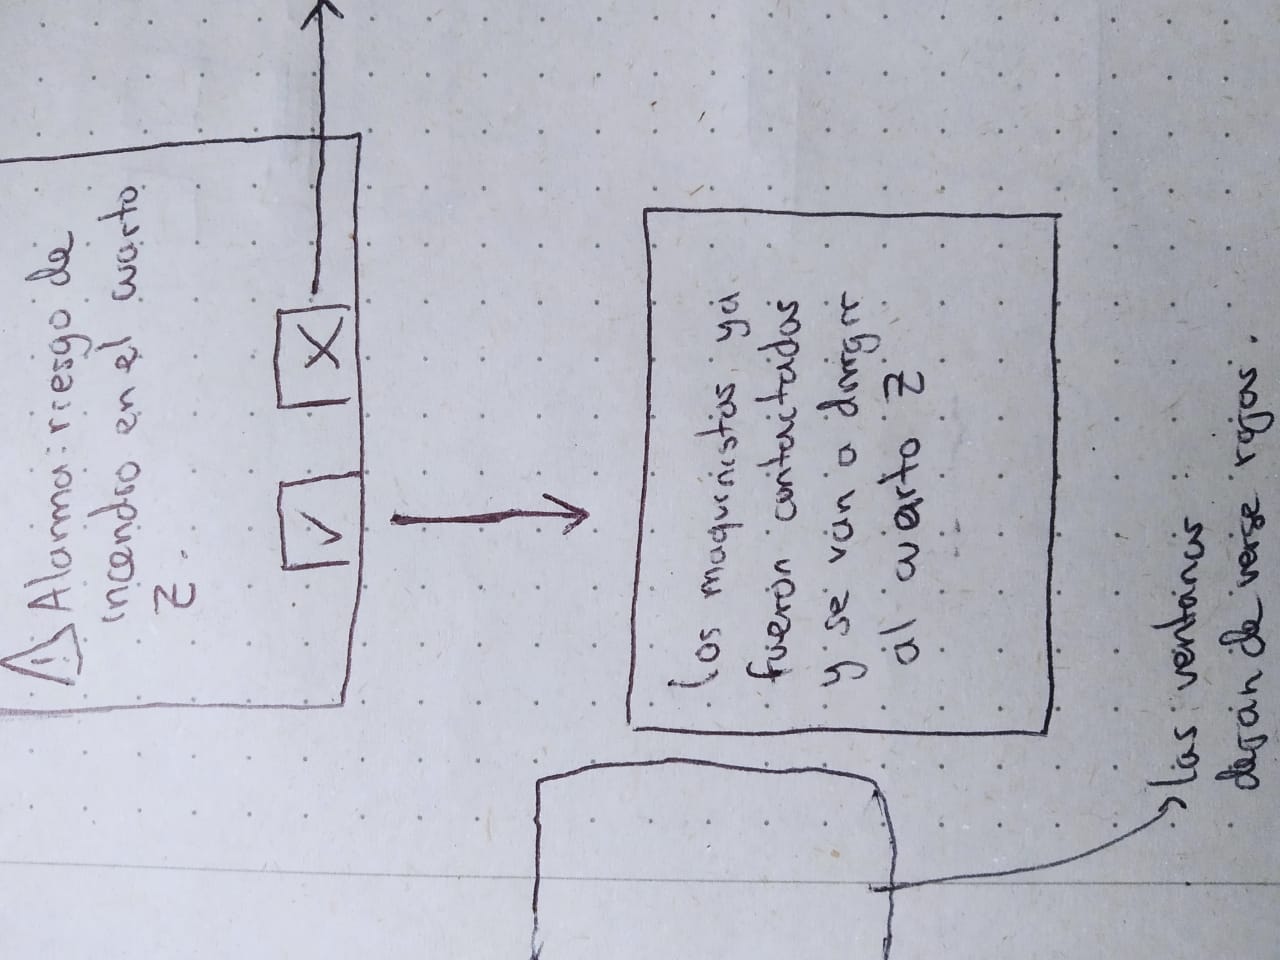 Alarma: riesgo de
incendio en el cuarto
Z.
Los maquinistas ya
fueron contactados
y se van a dirigir
al cuarto Z
Las ventanas
dejan de verse rojas.